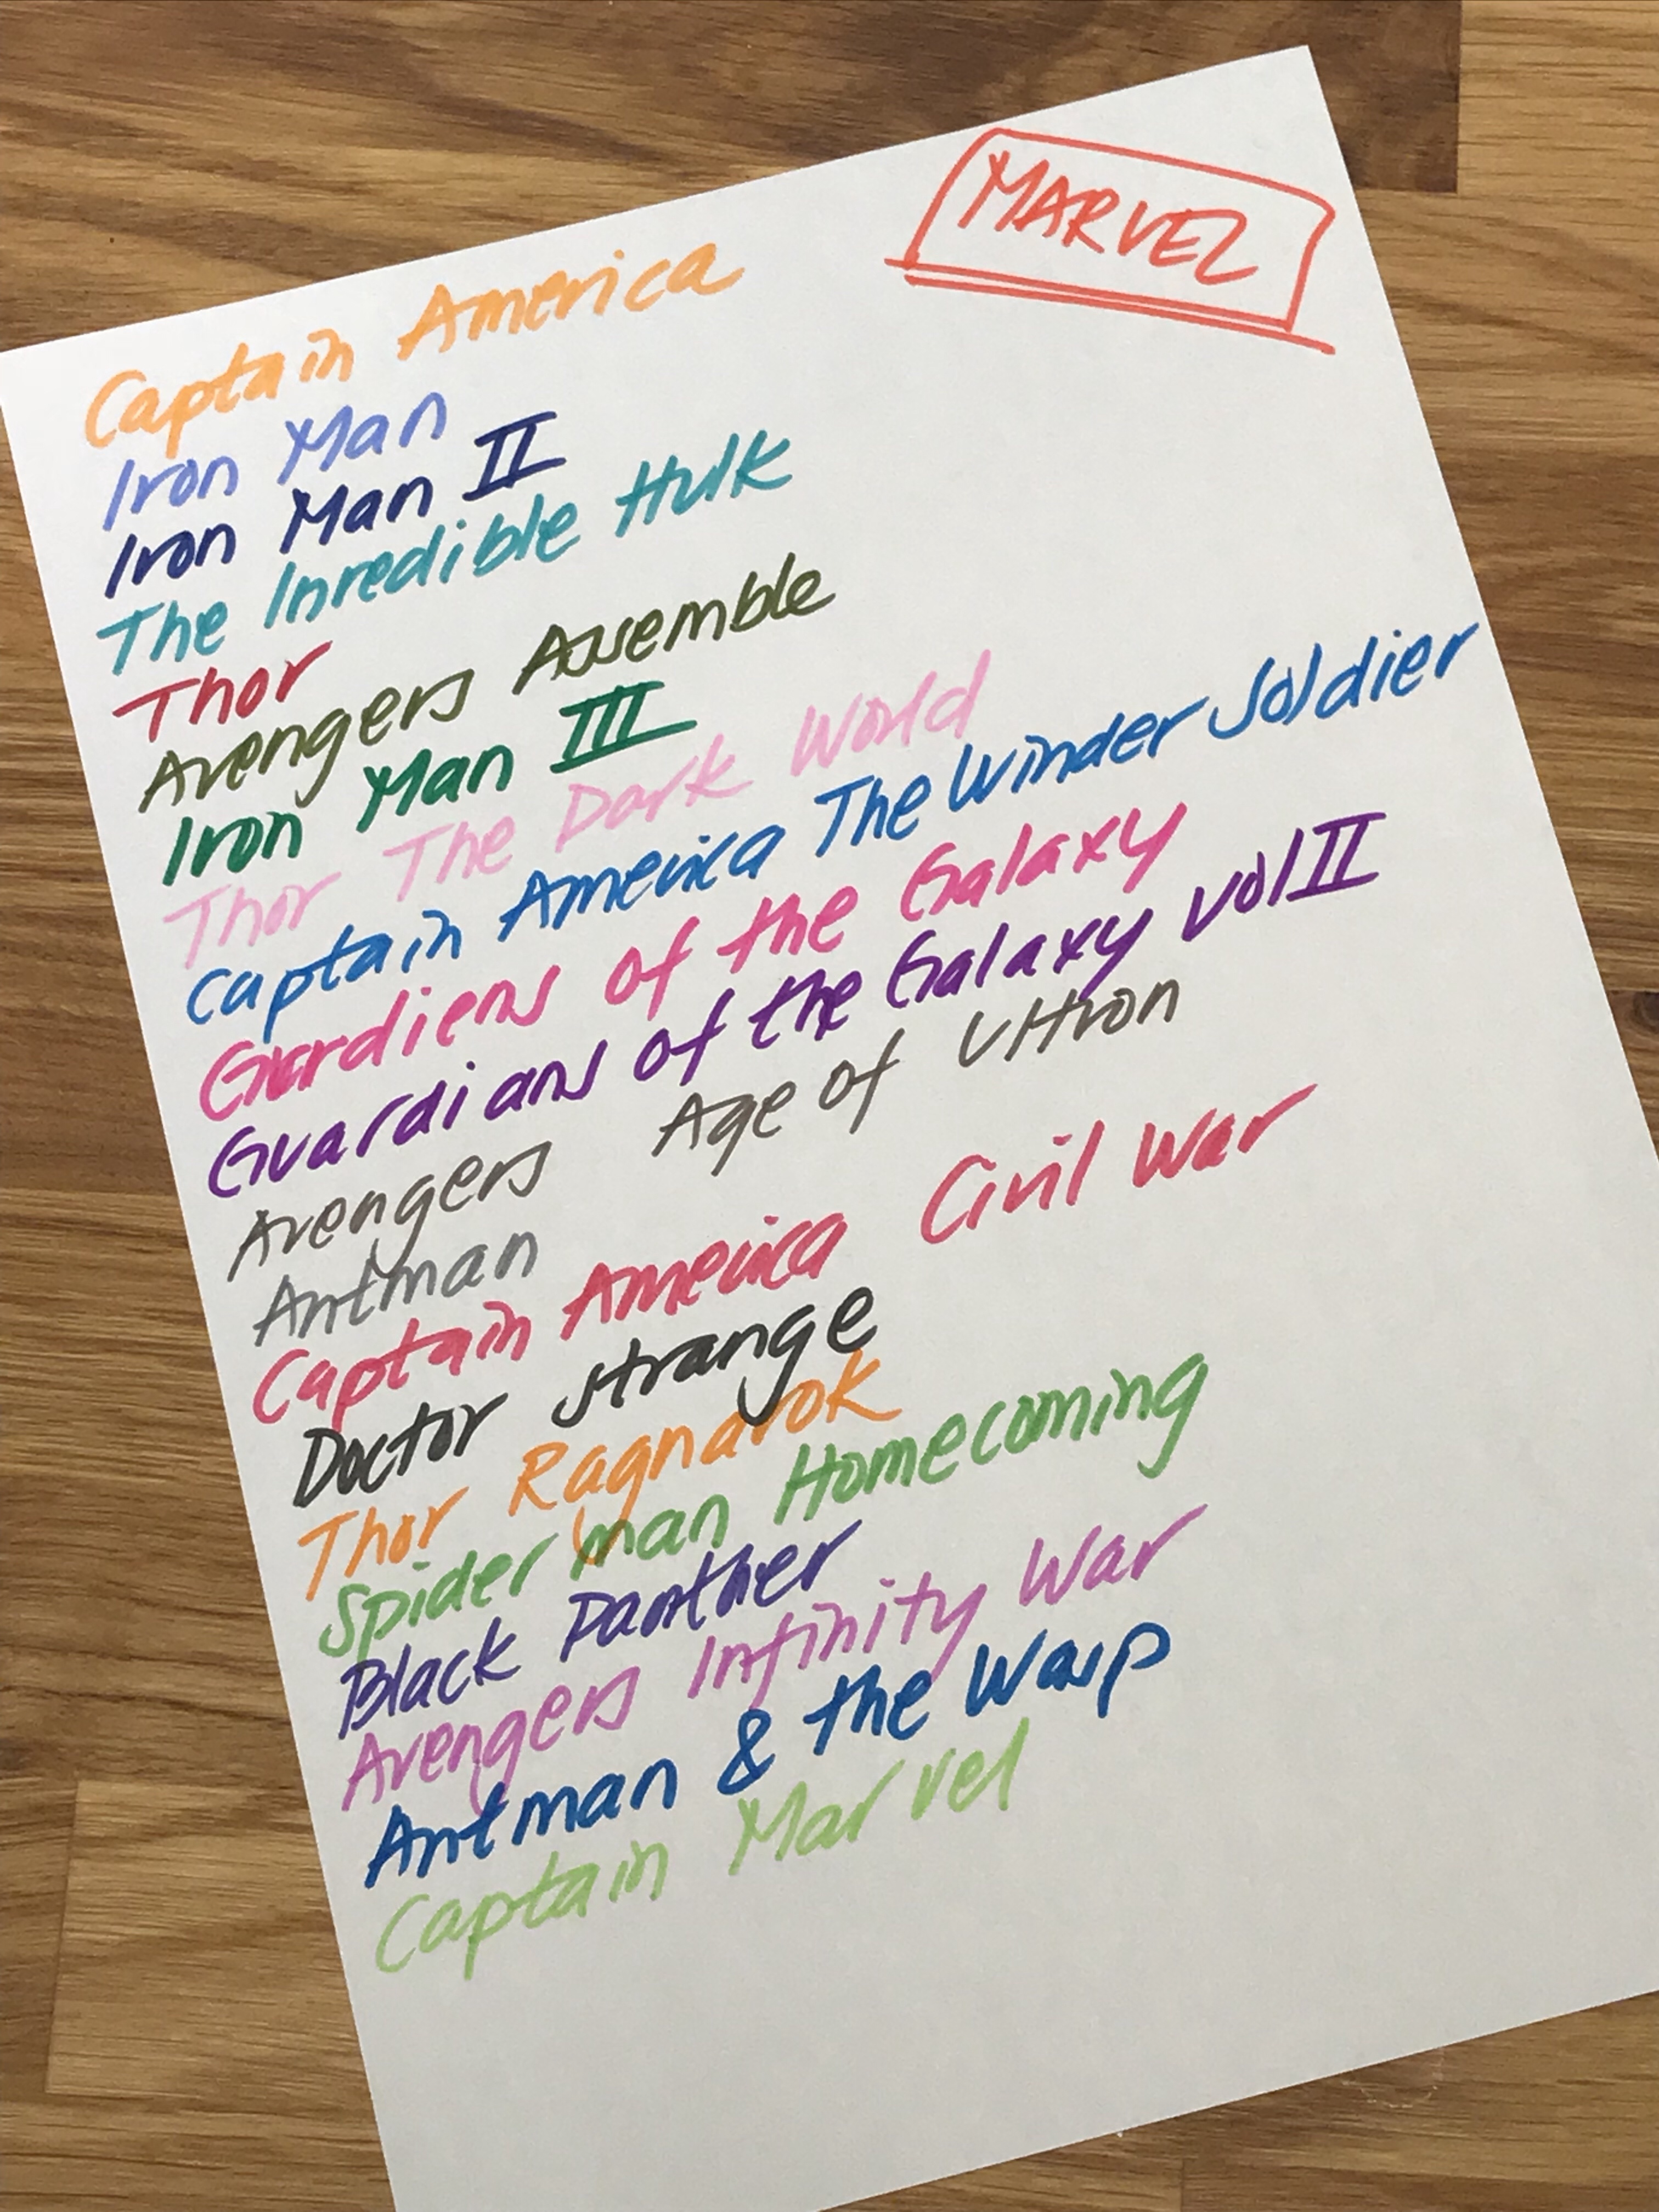 MARVEL
Captain America
Iron Man
Iron Man II
The Inredible Hulk
Thor
Avengers Assemble
Iron Man III
Thor The Dark World
Captain America The Winder Soldier
Gardiens of the Galaxy
Guardians of the Galaxy vol II
Avengers Age of Ultron
Antman
Captain America Civil War
Doctor Strange
Thor Ragnarok
Spider man Homecoming
Black Panther
Avengers Infinity War
Antman & the Wasp
Captain Marvel